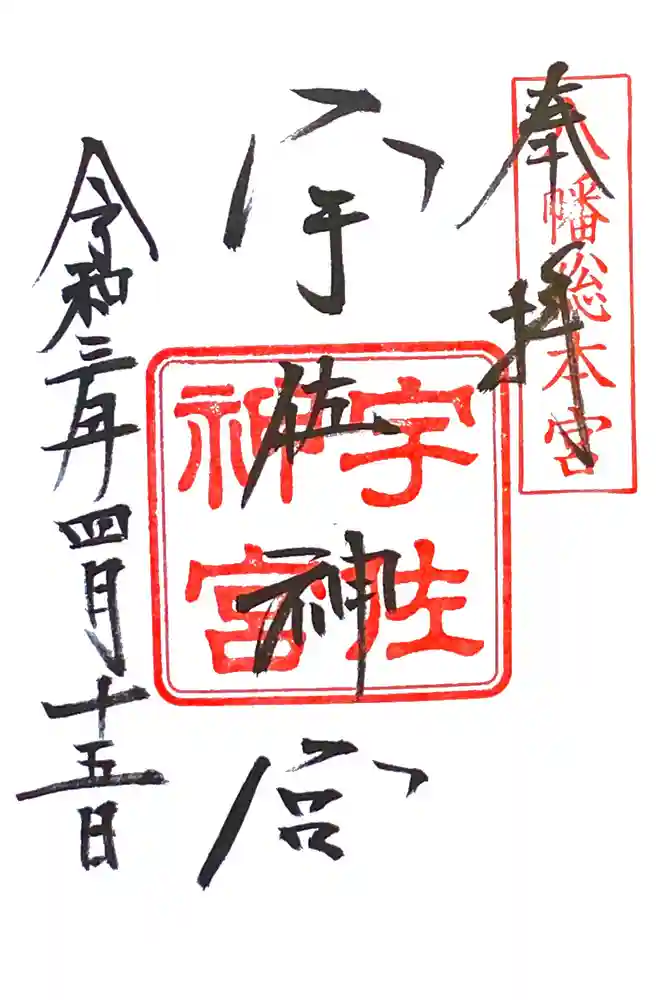 奉拝
八幡総本宮
宇佐神宮
宇佐
神宮
令和三年四月十五日